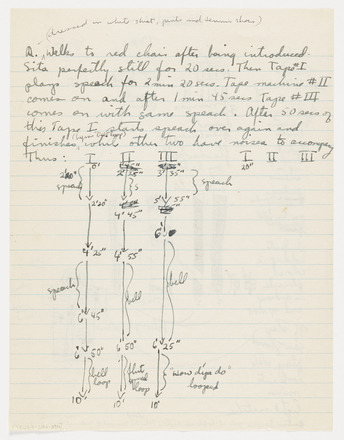 (dressed in white shirt, pants and tennis shoes)
R. Walks to red chair after being introduced.
Sits perfectly still for 20 secs. Then Tape #I
plays speach for 2 min 20 secs. Tape machine #II
comes on and after 1 min 45 secs Tape #III
comes on with same speach. After 50 secs of
this Tape I starts speach over again and
finishes, while other two have noises to accompany
Thus: I II III I II III
0' 20"
speach speach
2'20"
4' 45"
4' 25" 4' 55"
6'
speach bell bell
6' 45"
6' 50" 6' 50" 6' 25"
bell loop loop "How dya do" looped
10' 10' 10'